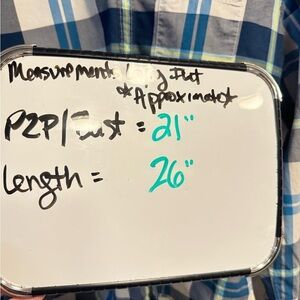 Measurements Lying Flat
*Approximate*
P2P/Bust = 21"
Length = 26"